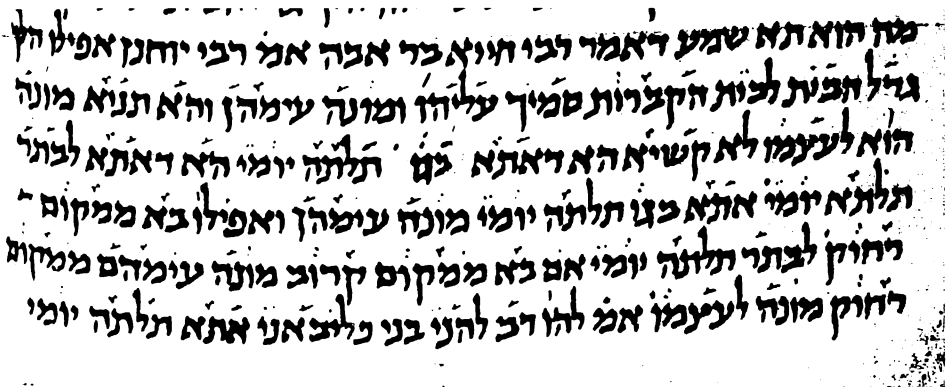 מה הוא תא שמע דאמר רבי חייא בר אבה אמ׳ רבי יוחנן אפילו הלך
גדל הבית לבית הקברות סמיך עליהו ומונה עימהן והא תניא מונה
הוא לעצמו לא קשיא הא דאתא בגו תלתה יומי הא דאתא לבתר
תלתא יומי אתא בגו תלתה יומי מונה עימהן ואפילו בא ממקום
רחוק לבתר תלתה יומי אם בא ממקום קרוב מונה עימהם ממקום
רחוק מונה לעצמו אמ׳ להו רב להני בני כליב אני אתא תלתה יומי